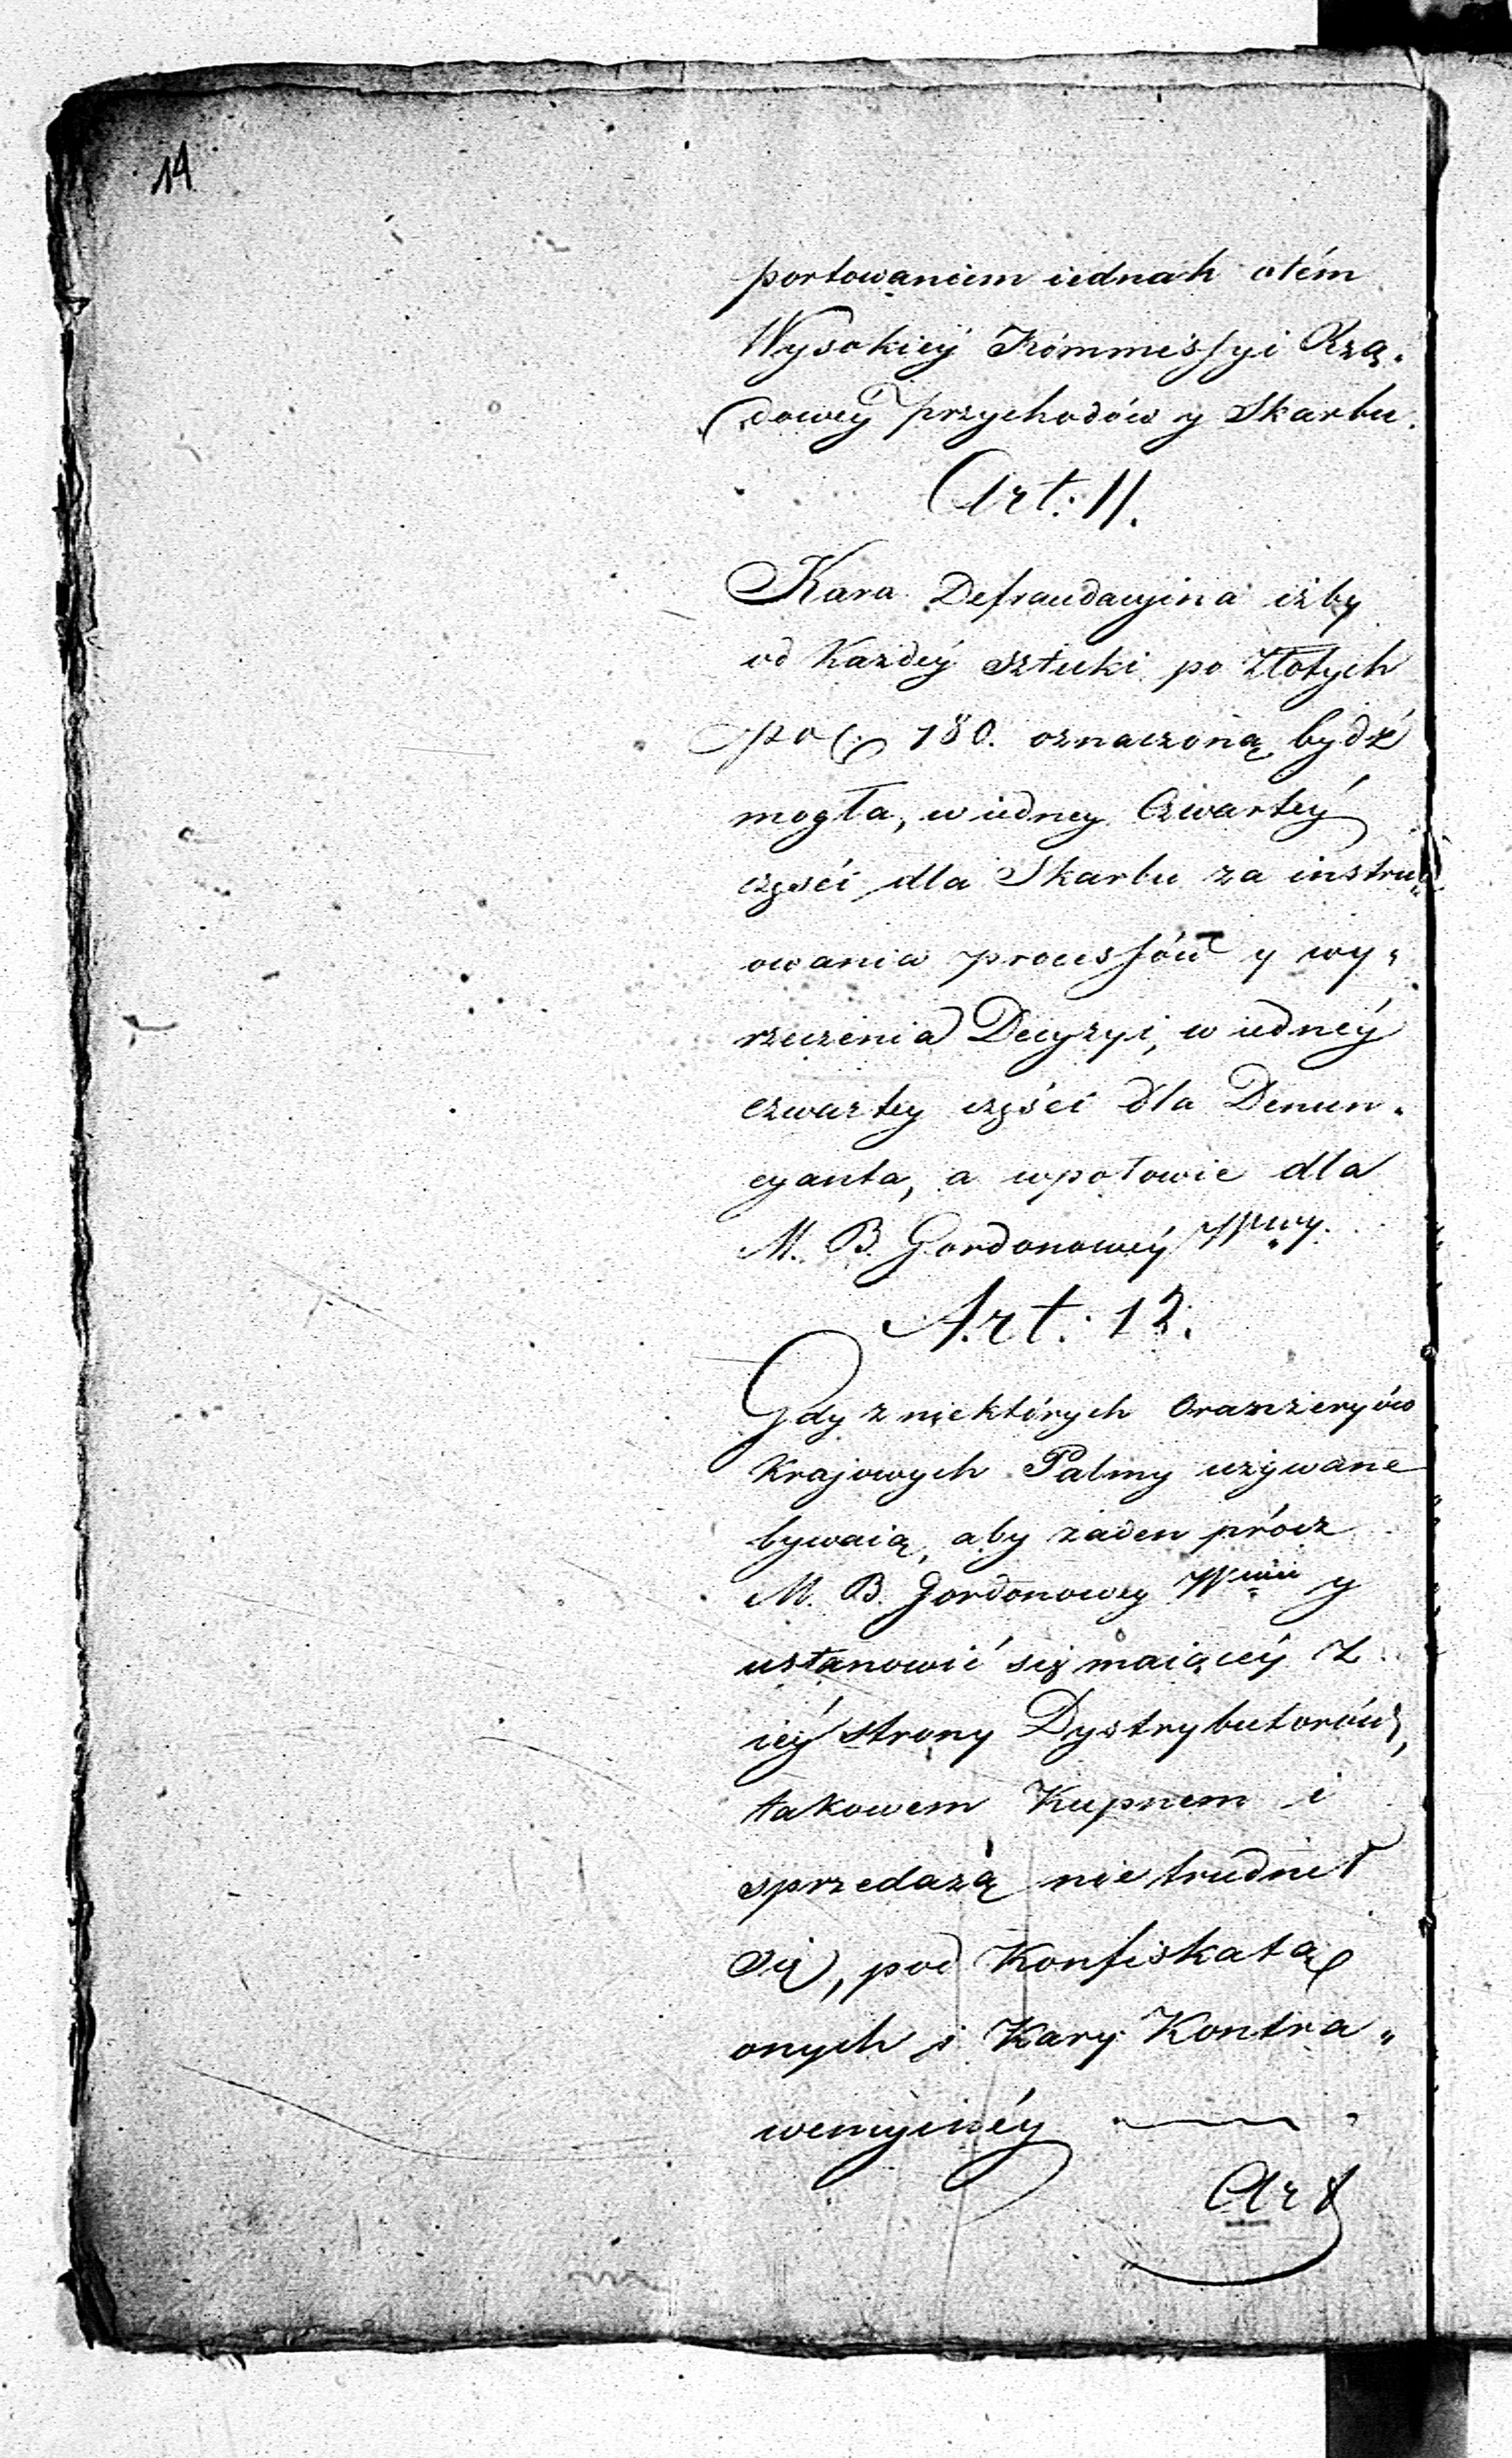 14
portowaniem iednak otém
Wysokiey Kommissyi Rzą„
dowey przychodów y Skarbu.
Art: 11.
Kara Defraudacyina izby
od Kazdey sztuki po Złotych
180. oznaczoną bydź
mogła, w iedney Czwartéy
części dla Skarbu za instru„
owania processów y wy„
rzeczenia Decyzyi, w iedney
czwartey części dla Denun„
cyanta, a wpołowie dla
M. B. Gordonowey
Art: 12.
Gdy z niektórych Oranzeryów
Krajowych Palmy uzywane
bywaią, aby zaden prócz
M. B. Gordonowey y
ustanowić się maiącéy z
iéy strony Dystrybutorów,
takowem Kupnem i
sprzedazą nie trudnił
się, pod Konfiskatą
onych i Kary Kontra„
wencyinéy
Art